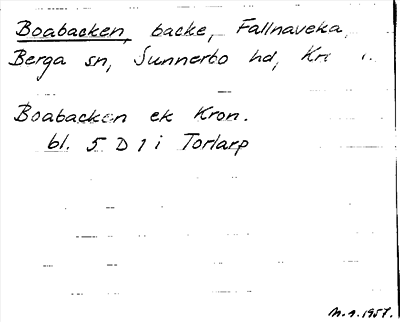 Boabacken, backe, Fallnaveka,
Berga sn, Sunnerbo hd, Kr
Boabacken ek Kron.
bl. 5 D 1 i Torlarp
1957.